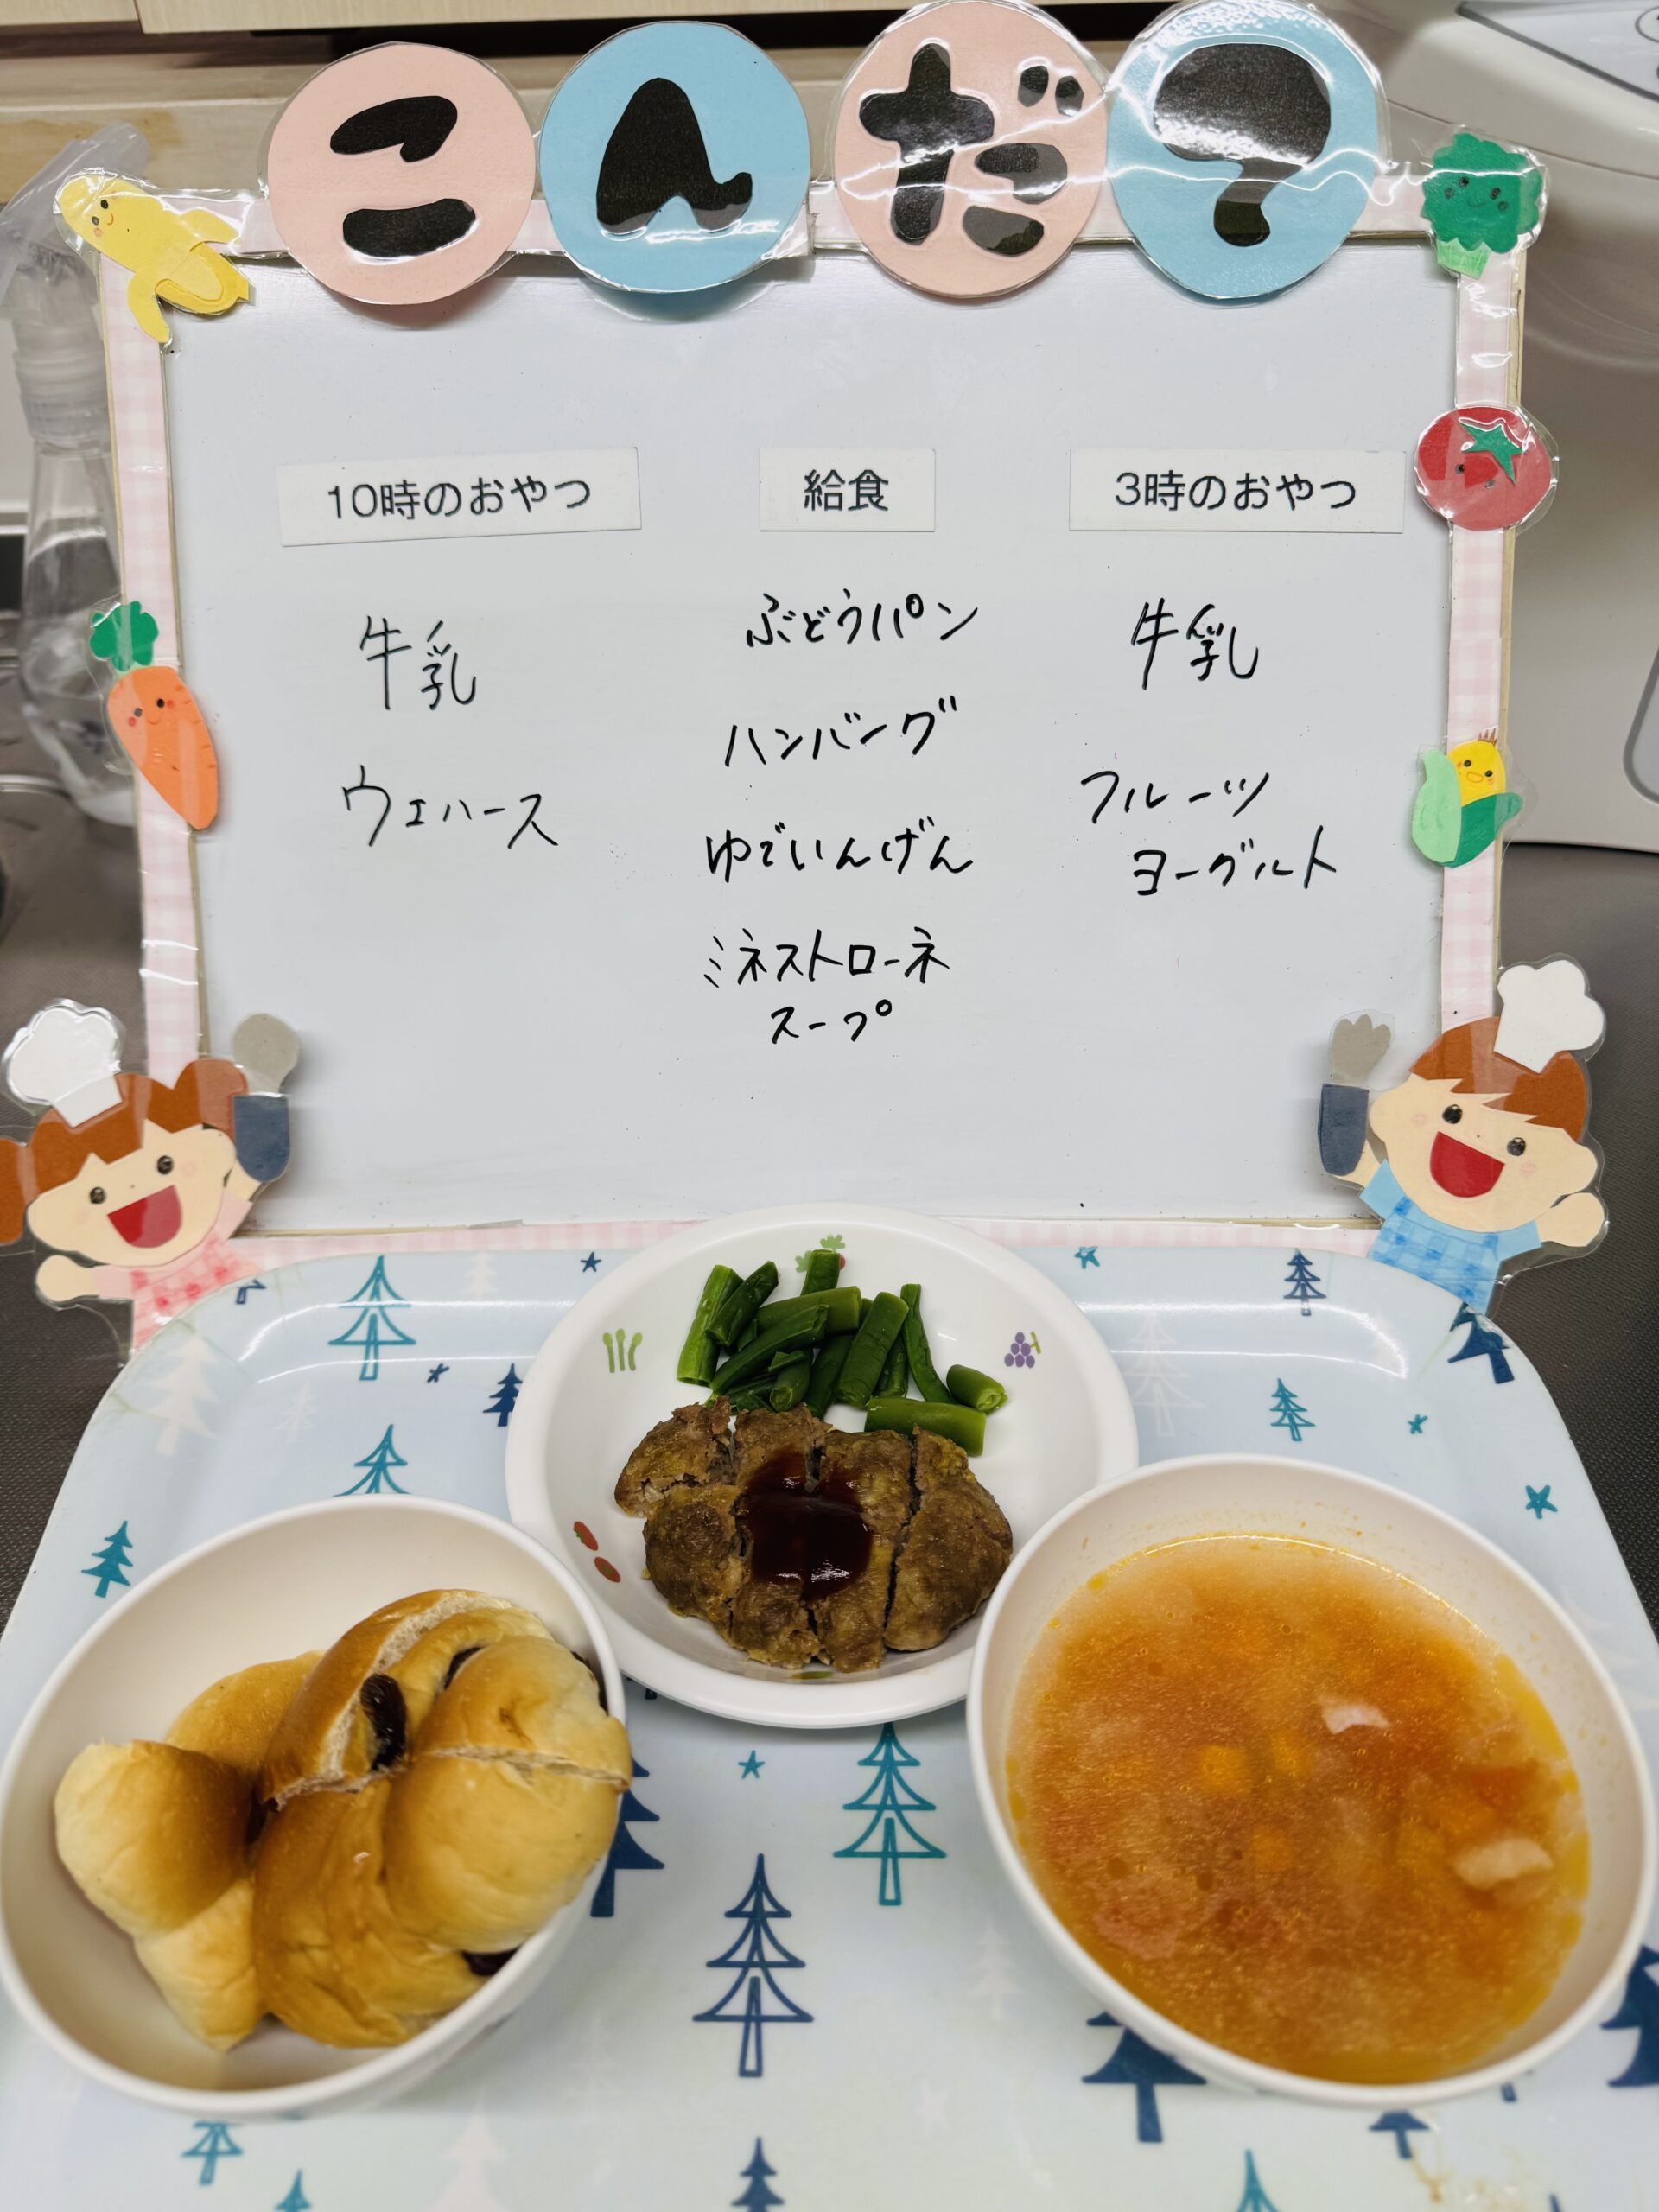 こんだ?
10時のおやつ
牛乳
ウエハース
給食
ぶどうパン
ハンバーグ
ゆでいんげん
ミネストローネ
スープ
3時のおやつ
牛乳
フルーツ
ヨーグルト